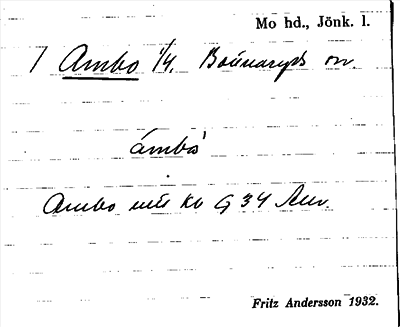 Mo hd., Jönk. l.
1 Ambo 1/4. Bounaryds sn.
ámbo
Ambo utt kb G 34 Aur.
Fritz Andersson 1932.